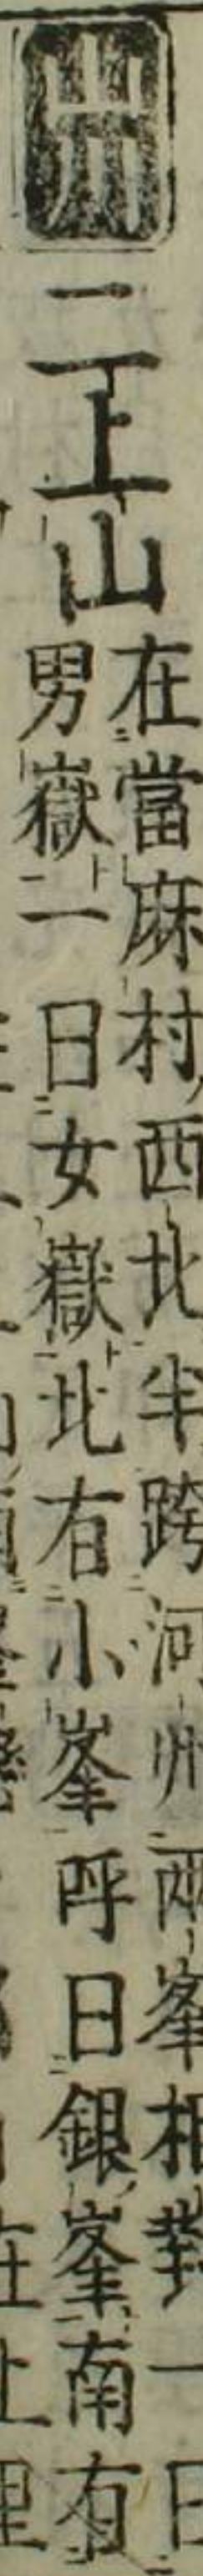 山
二上山
在當麻村西北半跨河州兩峯相對一曰
男嶽一曰女嶽北有小峯呼曰銀峯南有